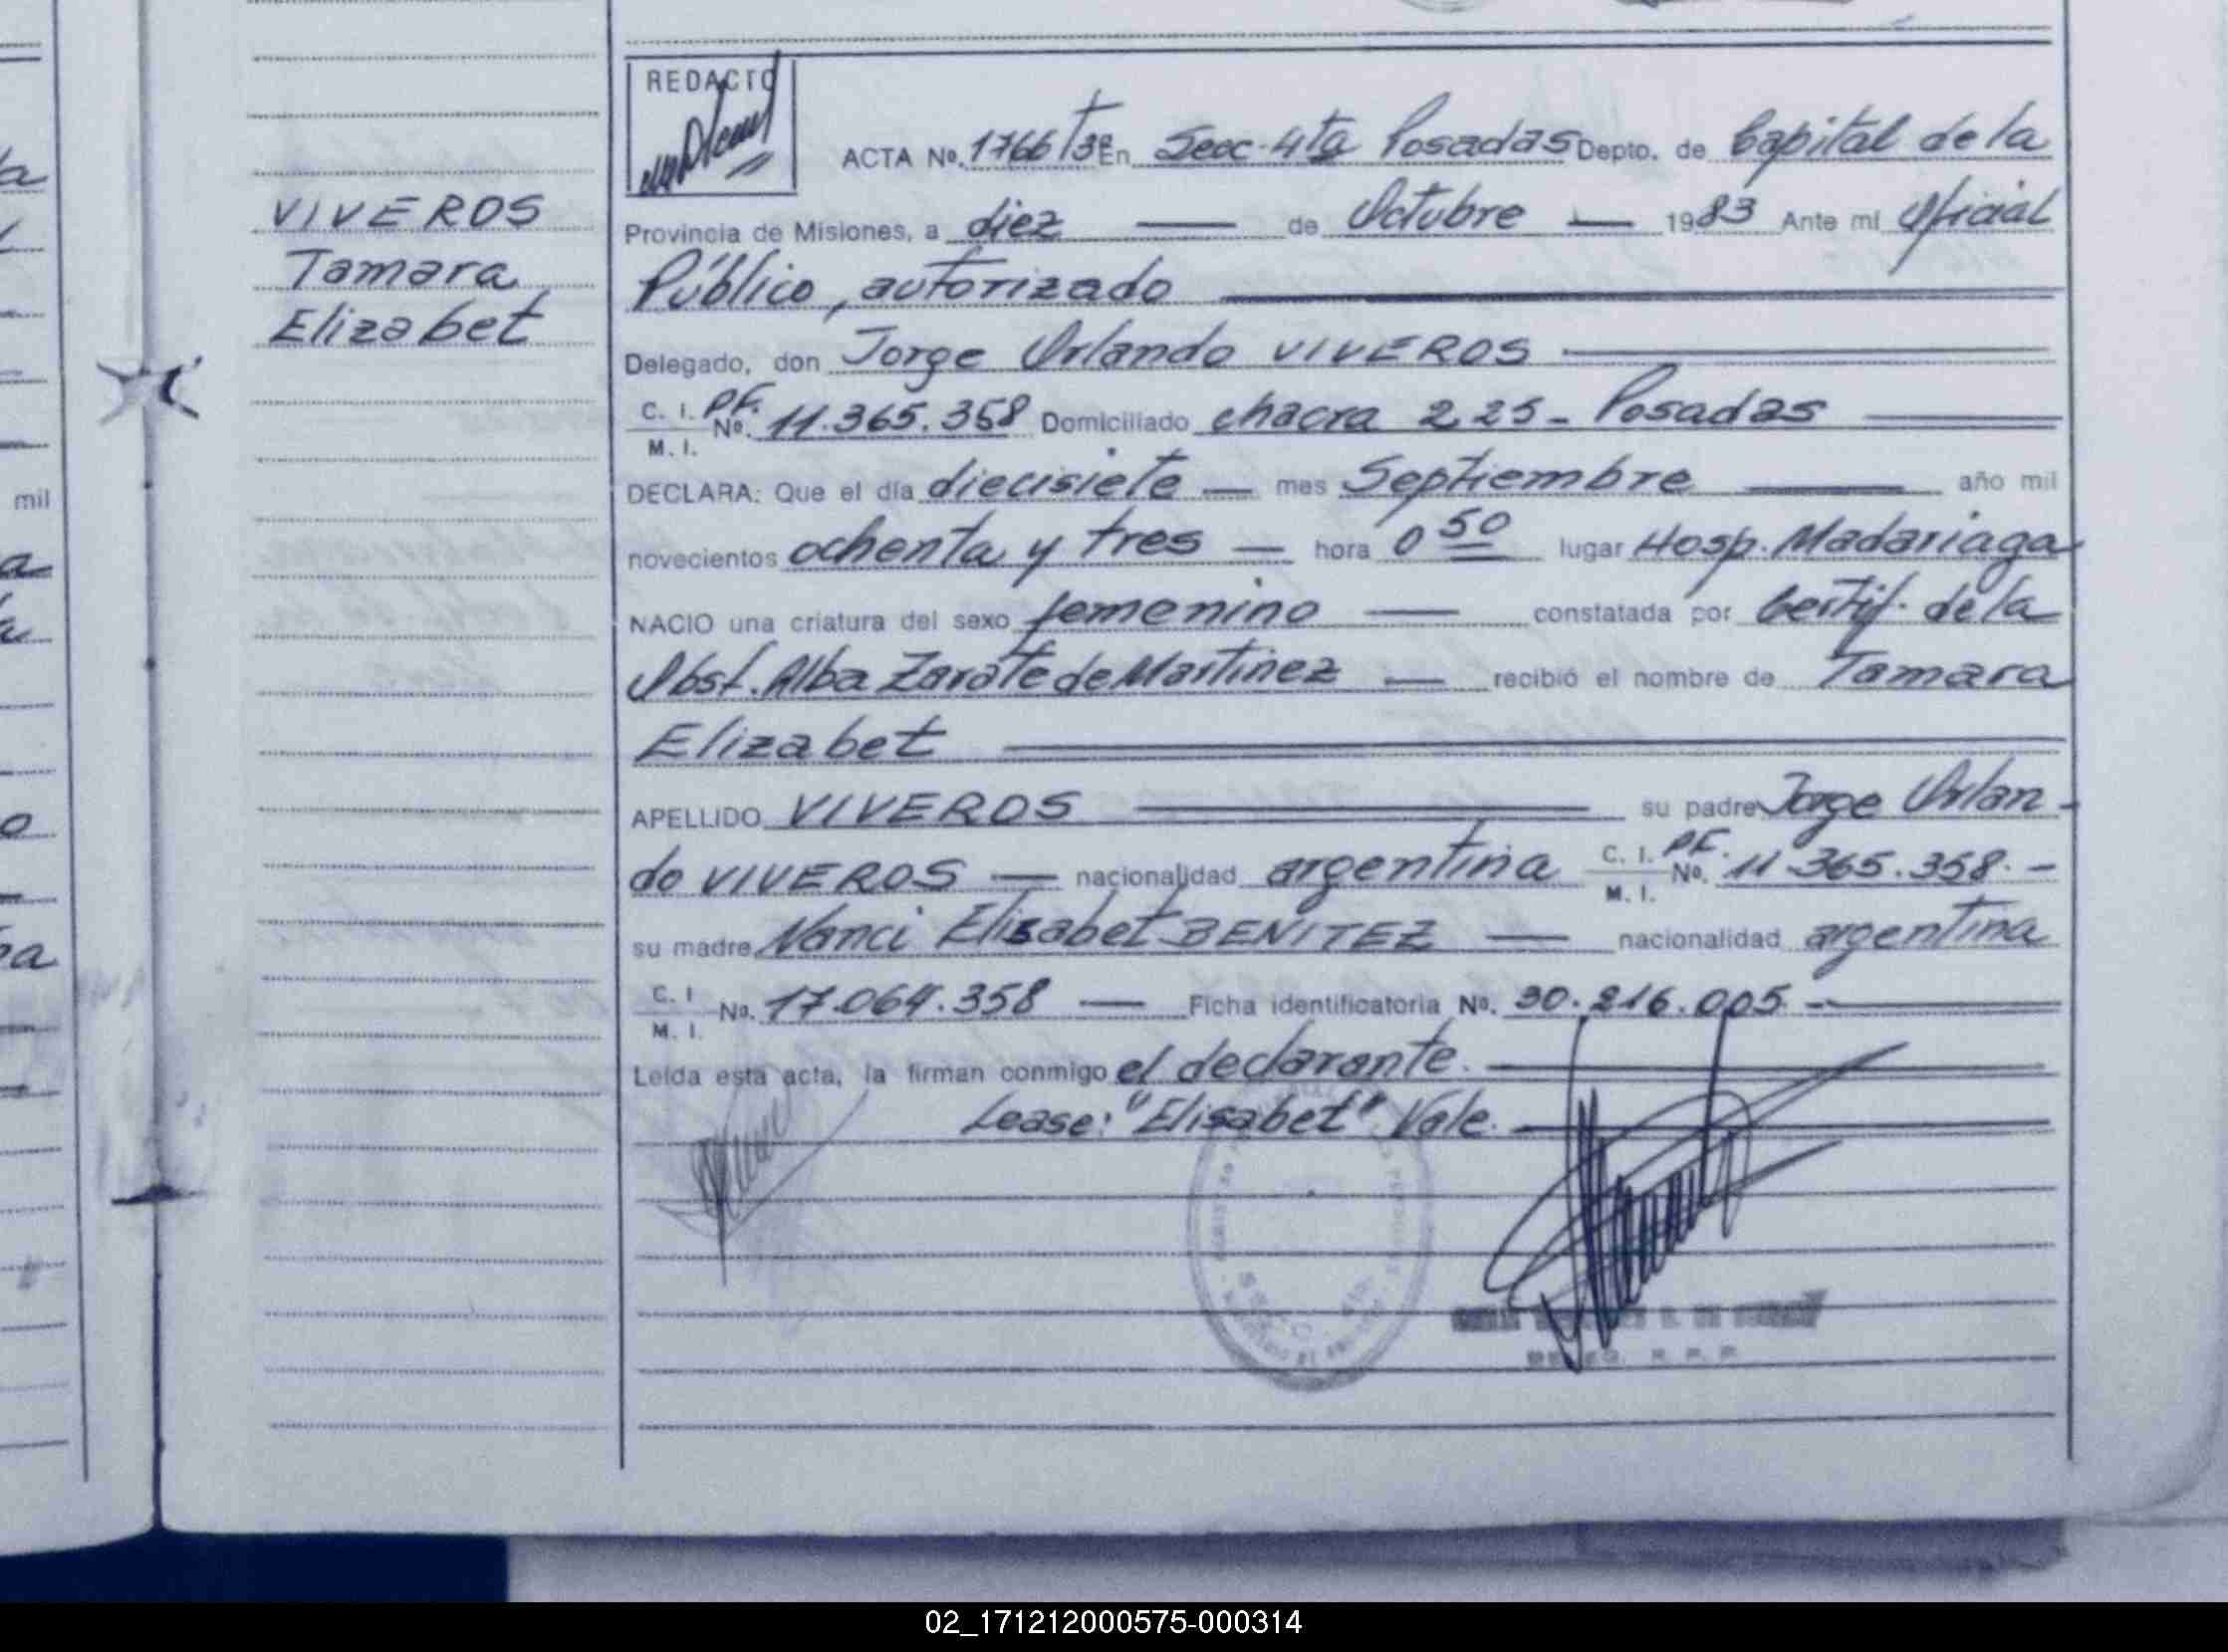 REDACTO
ACTA Nº. 1766 Tº 3º En Secc. 4ta Posadas Depto. de Capital de la
VIVEROS
Tamara
Elizabet
Provincia de Misiones, a diez de Octubre 1983 Ante mi Oficial
Público, autorizado
Delegado, don Jorge Orlando VIVEROS
C. I. P.F. Nº. 11.365.358 Domiciliado chacra 225 - Posadas
M. I.
DECLARA: Que el día diecisiete mes Septiembre año mil
novecientos ochenta y tres hora 0 50 lugar Hosp. Madariaga
NACIO una criatura del sexo femenino constatada por Certif. de la
Obst. Alba Zarate de Martinez recibió el nombre de Tamara
Elizabet
APELLIDO VIVEROS su padre Jorge Orlan-
do VIVEROS nacionalidad argentina C. I. P.F. Nº. 11.365.358.-
M. I.
su madre Nanci Elisabet BENITEZ nacionalidad argentina
C. I Nº. 17.064.358 Ficha identificatoria Nº. 30.216.005 -
M. I.
Leída esta acta, la firman conmigo el declarante.
Lease: "Elisabet" Vale.
mil
a
o
02_171212000575-000314